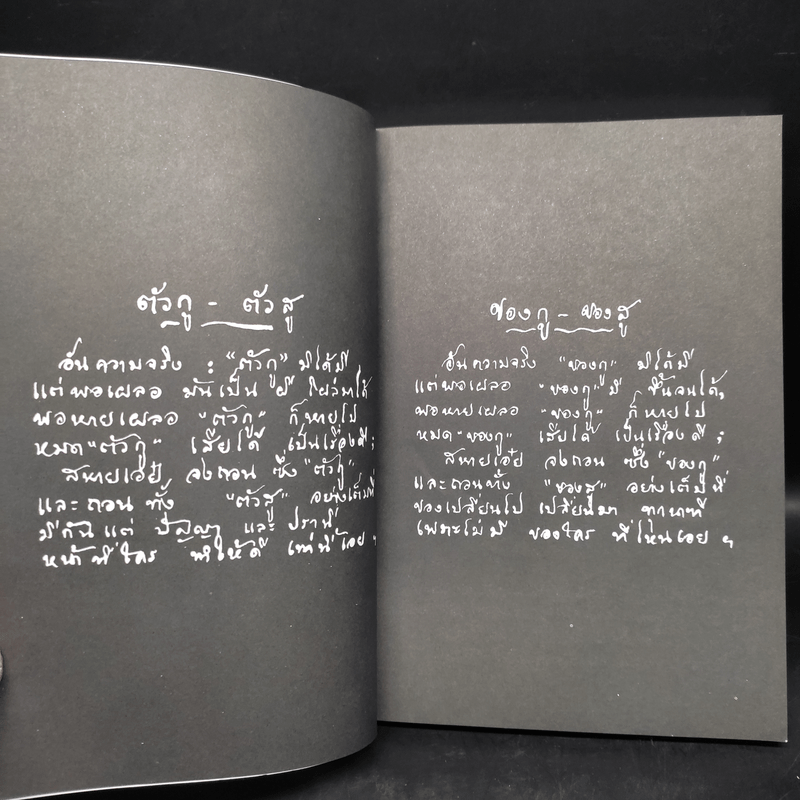 ตัวกู - ตัวสู
อันความจริง : "ตัวกู" มิได้มี
แต่พอเผลอ มันเป็น ผี โผล่มาได้
พอหายเผลอ "ตัวกู" ก็หายไป
หมด "ตัวกู" เสียได้ เป็นเรื่องดี ;
สหายเอ๋ย จงถอน ซึ่ง "ตัวกู"
และถอน ทั้ง "ตัวสู" อย่างเต็มที่
มีกันแต่ ปัญญา และ ปรานี
หน้าที่ใคร ทำให้ดี เท่านี้เอย ฯ
ของกู - ของสู
อันความจริง "ของกู" มิได้มี
แต่พอเผลอ "ของกู" มี ขึ้นจนได้,
พอหายเผลอ "ของกู" ก็หายไป
หมด "ของกู" เสียได้ เป็นเรื่องดี ;
สหายเอ๋ย จงถอน ซึ่ง "ของกู"
และถอนทั้ง "ของสู" อย่างเต็มที่
ของเปลี่ยนไป เปลี่ยนมา
เพราะไม่มี ของใคร ที่ไหนเอย ฯ